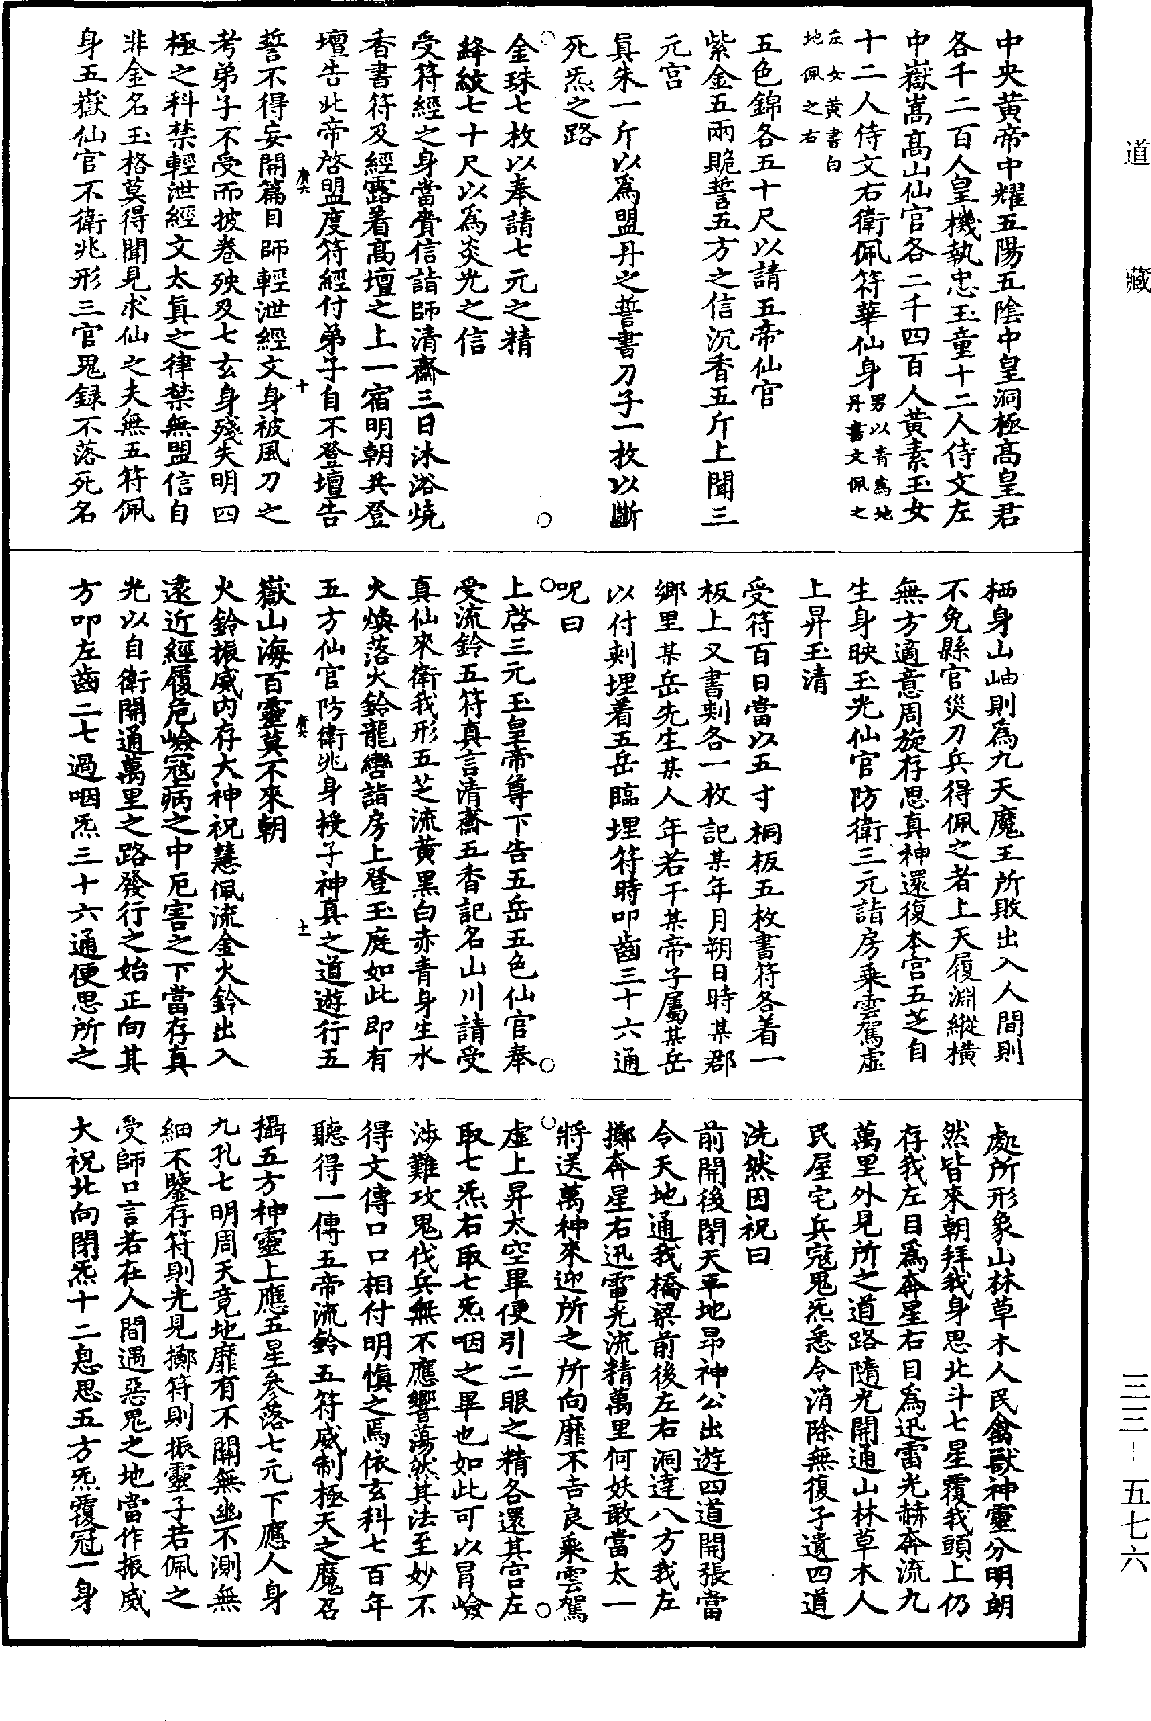 道藏
三三-五七六
中央黃帝中耀五陽五陰中皇洞極高皇君
各千二百人皇機執忠玉童十二人侍文左
中嶽嵩高山仙官各二千四百人黃素玉女
十二人侍文右衛佩符華仙身男以青爲地丹書文佩之
左女黃書白
地佩之右
五色錦各五十尺以請五帝仙官
紫金五兩賧誓五方之信沉香五斤上聞三
元宮
眞朱一斤以爲盟丹之誓書刀子一枚以斷
死炁之路
金珠七枚以奉請七元之精
絳紋七十尺以爲炎光之信
受符經之身當賫信詣師清齋三日沐浴燒
香書符及經露着高壇之上一宿明朝共登
壇告北帝啓盟度符經付弟子自不登壇告
誓不得妄開篇目師輕泄經文身被風刀之
考弟子不受而披卷殃及七玄身殘失明四
極之科禁輕泄經文太真之律禁無盟信自
非金名玉格莫得聞見求仙之夫無五符佩
身五嶽仙官不衛兆形三官鬼録不落死名
栖身山岫則爲九天魔王所敗出入人間則
不免縣官災刀兵得佩之者上天履淵縱橫
無方適意周旋存思真神還復本宫五芝自
生身映玉光仙官防衛三元詣房乘雲駕虛
上昇玉清
受符百日當以五寸桐板五枚書符各着一
板上又書刾各一枚記某年月朔日時某郡
鄉里某岳先生某人年若干某帝子屬某岳
以付刾埋着五岳臨埋符時叩齒三十六通
呪曰
上啓三元玉皇帝尊下告五岳五色仙官奉
受流鈴五符真言清齋五香記名山川請受
真仙來衛我形五芝流黃黑白赤青身生水
火煥落火鈴龍轡詣房上登玉庭如此即有
五方仙官防衛兆身授子神真之道遊行五
嶽山海百靈莫不來朝
火鈴振威内存大神祝慧佩流金火鈴出入
遠近經履危嶮冦病之中厄害之下當存真
光以自衛開通萬里之路發行之始正向其
方叩左齒二七過咽炁三十六通便思所之
處所形象山林草木人民禽獸神靈分明朗
然皆來朝拜我身思北斗七星覆我頭上仍
存我左目爲奔星右目爲迅雷光赫奔流九
萬里外見所之道路隨光開通山林草木人
民屋宅兵冦鬼炁悉令消除無復孑遺四道
洗然因祝曰
前開後閉天平地昂神公出遊四道開張當
令天地通我橋梁前後左右洞達八方我左
擲奔星右迅雷光流精萬里何妖敢當太一
將送萬神來迎所之所向靡不吉良乘雲駕
虛上昇太空畢便引二眼之精各還其宫左
取七炁右取七炁咽之畢也如此可以冒嶮
涉難攻鬼伐兵無不應響蕩然其法至妙不
得文傳口口相付明慎之焉依玄科七百年
聽得一傳五帝流鈴五符威制極天之魔召
攝五方神靈上應五星參落七元下應人身
九孔七明周天竟地靡有不關無幽不測無
細不鑒存符則光見擲符則振靈子若佩之
受師口言若在人間遇惡鬼之地當作振威
大祝北向閉炁十二息思五方炁覆冠一身